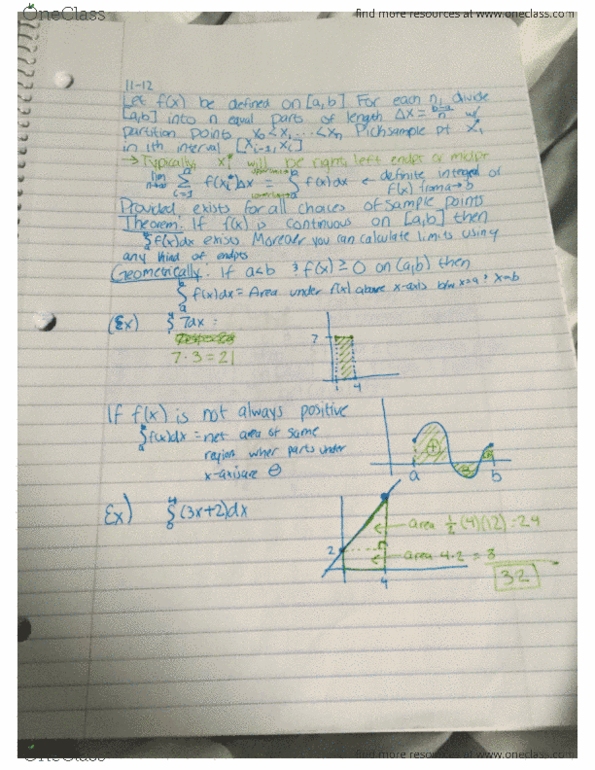 OneClass
find more resources at www.oneclass.com
11-12
Let f(x) be defined on [a,b] For each n, divide
[a,b] into n equal parts of length Δx = b-a/n w/
partition points x₀ < x₁ ... < xₙ Pick sample pt xᵢ*
in ith interval [xᵢ₋₁, xᵢ]
→ Typically xᵢ* will be right, left endpt or midpt
lim n→∞ Σ i=1 n f(xᵢ*)Δx = ∫ a b f(x)dx ← definite integral of
f(x) from a→b
Provided, exists for all choices of sample points
Theorem: If f(x) is continuous on [a,b] then
∫ a b f(x)dx exists Moreover you can calculate limits using
any kind of endpts
Geometrically: If a<b & f(x) ≥ 0 on (a,b) then
∫ a b f(x)dx = Area under f(x) above x-axis b/w x=a & x=b
(Ex) ∫ 1 4 7dx =
7·3 = 21
7
1 4
If f(x) is not always positive
∫ a b f(x)dx = net area of some
region wher parts under
x-axis are ⊖
+
a b
Ex) ∫ 0 4 (3x+2)dx
area ½(4)(12) = 24
2
area 4·2 = 8
4
32
OneClass
find more resources at www.oneclass.com